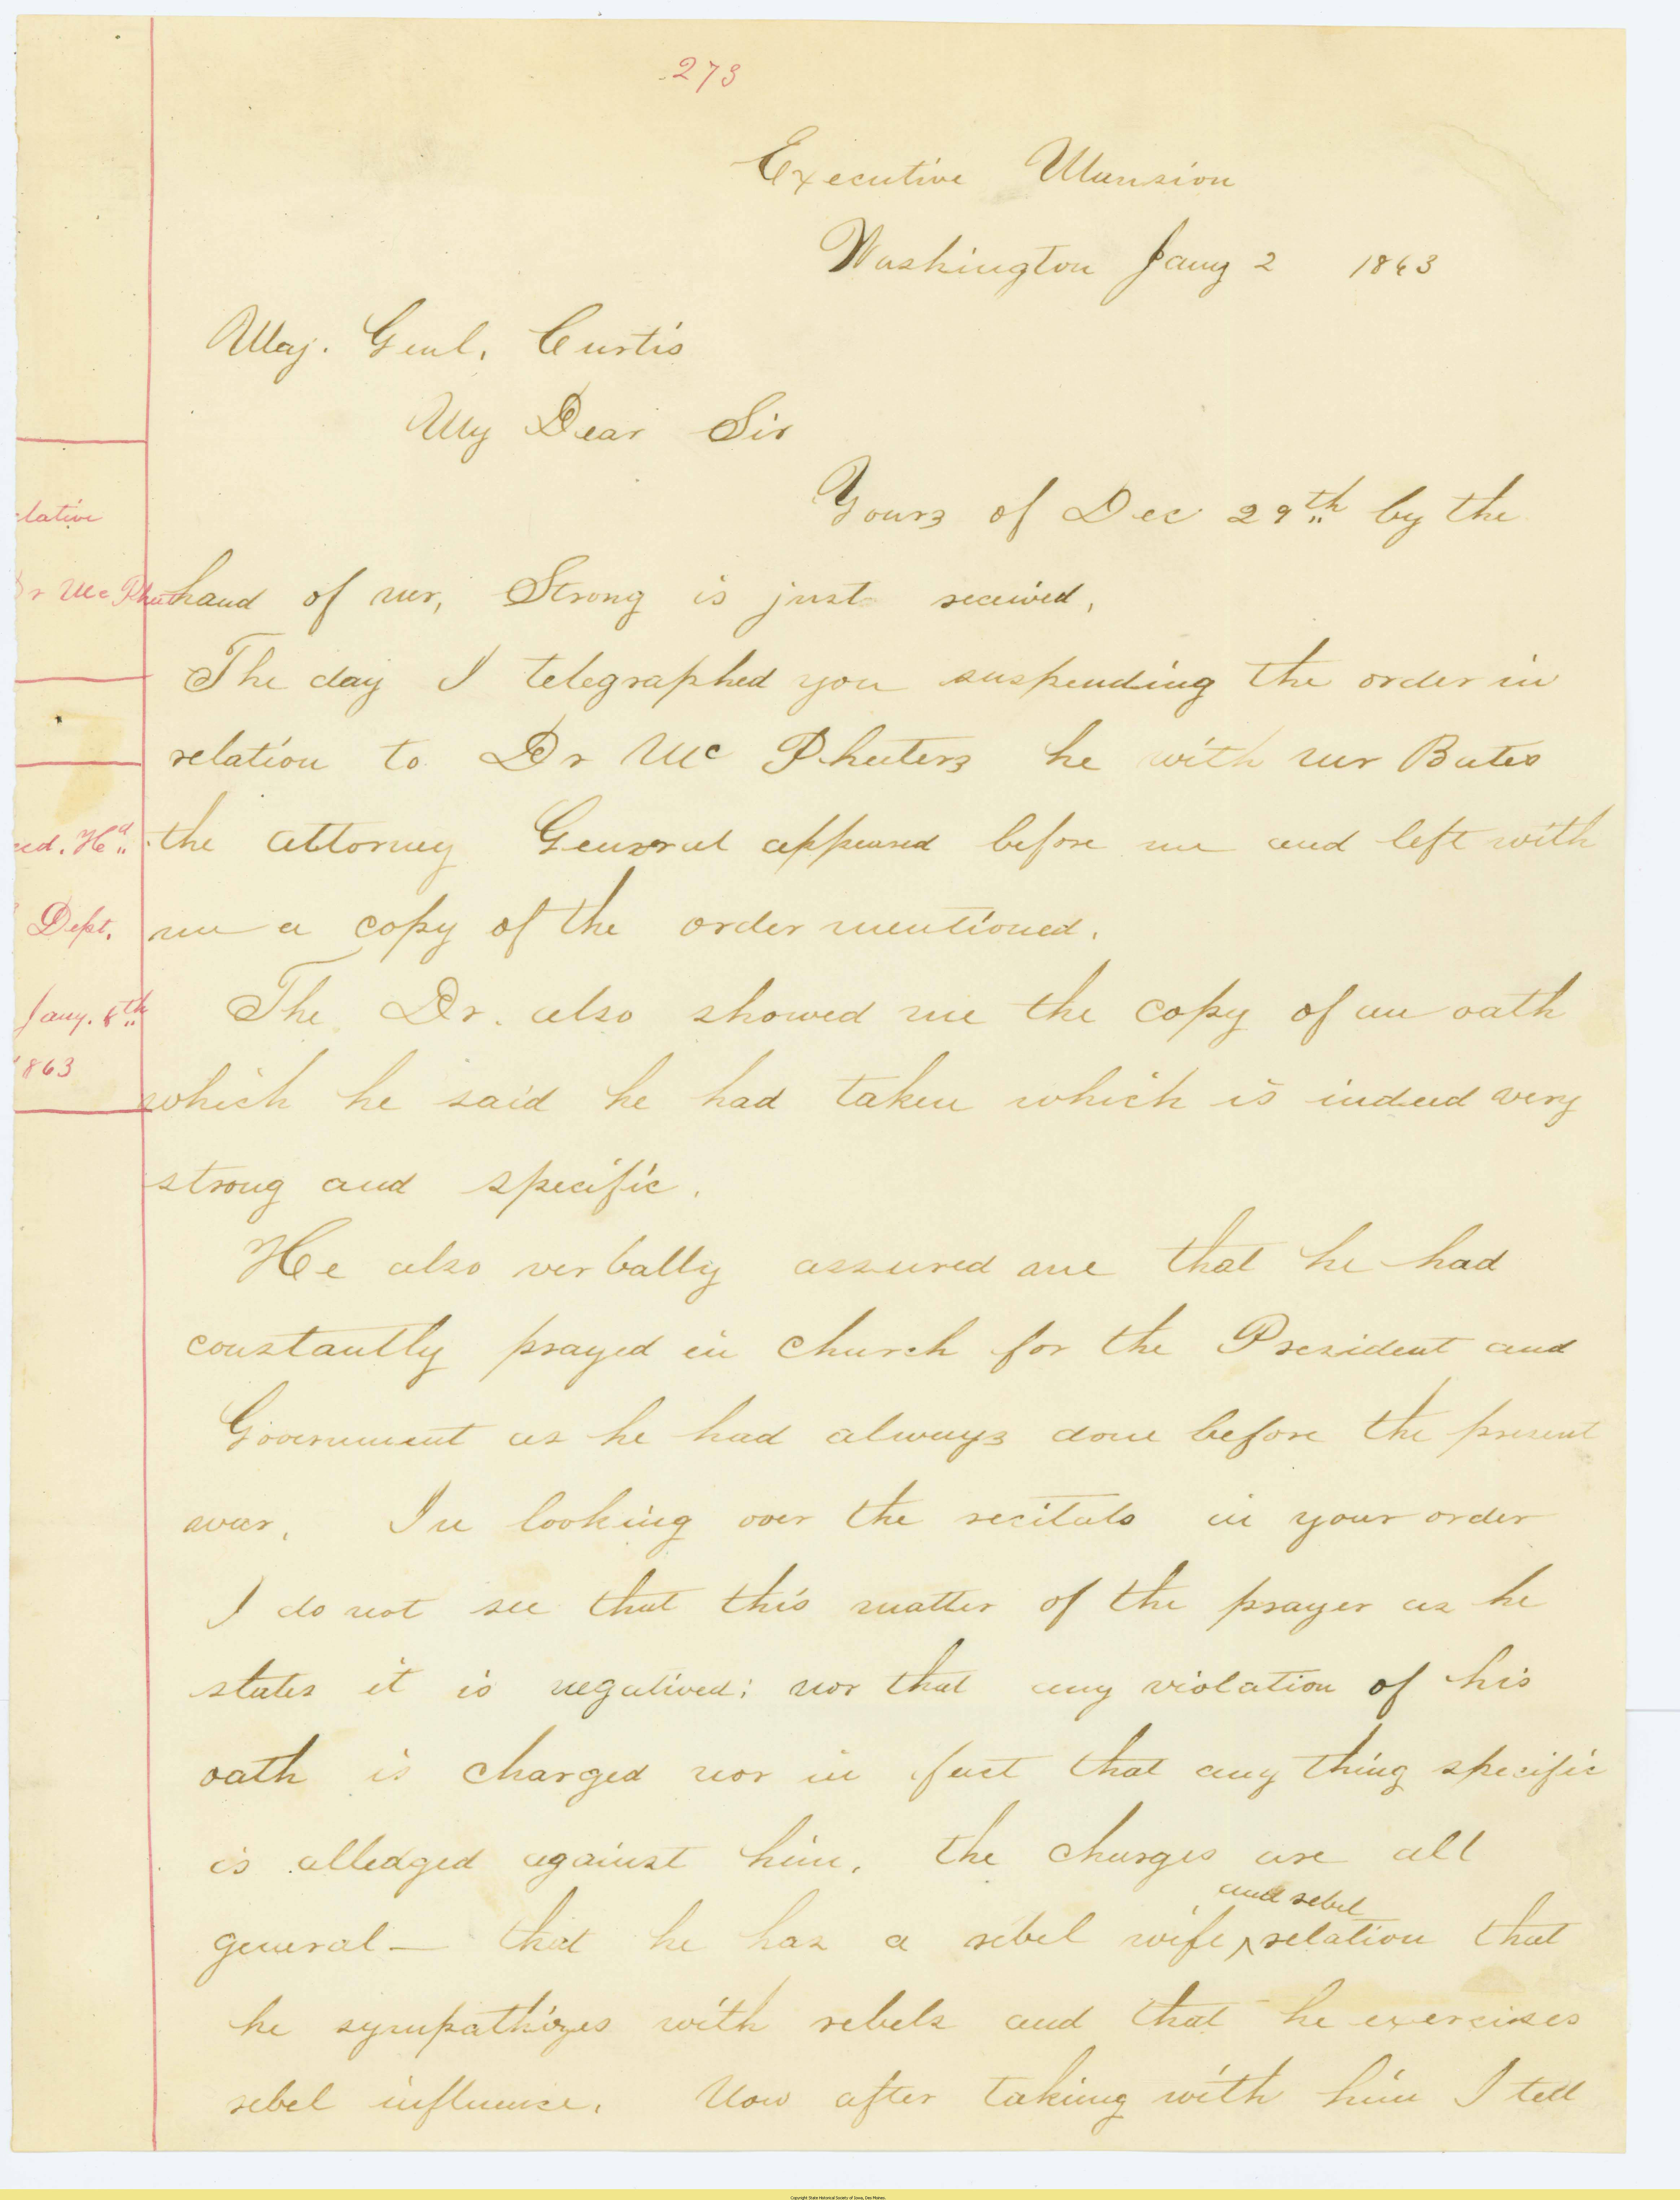 273
Executive Mansion
Washington Jany 2 1863
Maj. Genl. Curtis
My Dear Sir
Yours of Dec 29th by the
hand of mr, Strong is just received,
The day I telegraphed you suspending the order in
relation to Dr Mc Pheeters he with mr Bates
the attorney General appeared before me and left with
me a copy of the order mentioned.
The Dr. also showed me the copy of an oath
which he said he had taken which is indeed very
strong and specific.
He also verbally assured me that he had
constantly prayed in church for the President and
Government as he had always done before the present
war. In looking over the recitals in your order
I do not see that this matter of the prayer as he
states it is negatived; nor that any violation of his
oath is charged nor in fact that any thing specific
is alledged against him. the charges are all
general — that he has a rebel wife ^ and rebel relation that
he sympathizes with rebels and that he exercises
rebel influence. Now after taking with him I tell
lative
Dr Mc Pheet
ed. Hd
Dept.
Jany. 6th
1863
Copyright State Historical Society of Iowa, Des Moines.